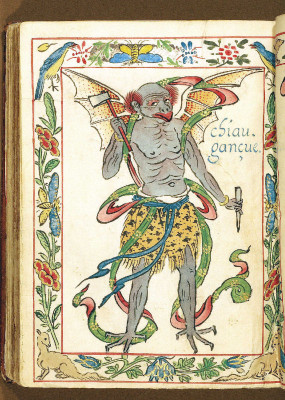 chiau.
gançue.